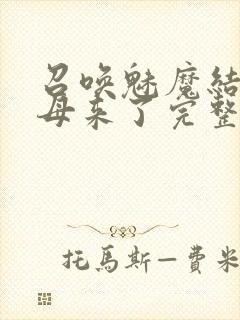 召唤魅魔结
母来了完整
托馬斯—費米